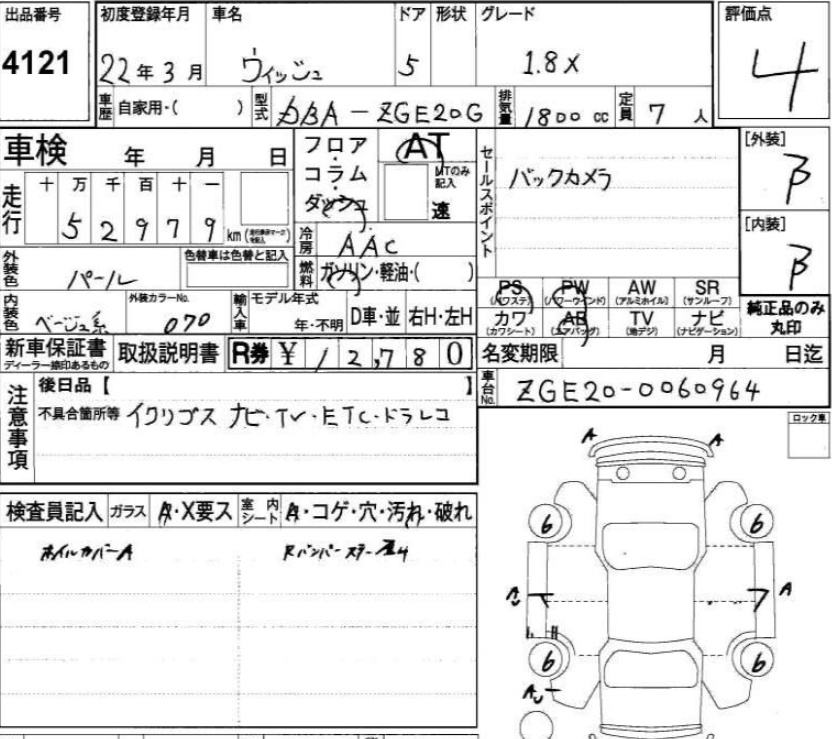 出品番号 初度登録年月 車名 ドア 形状 グレード 評価点
4121 22年3月 ウィッシュ 5 1.8X 4
車歴 自家用・( ) 型式 DBA-ZGE20G 排気量 1800cc 定員 7人
車検 年 月 日 フロア・コラム・ダッシュ AT MTのみ記入 速
セールスポイント バックカメラ
[外装] B
[内装] B
走行 十万千百十一
52979 km
冷房 AAC
外装色 パール 色替車は色替と記入 燃料 ガソリン・軽油・( )
内装色 ベージュ系 外装カラーNo. 070 輸入車 モデル年式 年・不明 D車・並 右H・左H
PS (パワステ) PW (パワーウインド) AW (アルミホイル) SR (サンルーフ)
カワ (カワシート) AB (エアバッグ) TV (地デジ) ナビ (ナビゲーション)
純正品のみ丸印
新車保証書 ディーラー捺印あるもの 取扱説明書 R券 ¥12,780 名変期限 月 日迄
車台No. ZGE20-0060964
注意事項 後日品【 】
不具合箇所等 イクリゴス ナビ・TV・ETC・ドラレコ
ロック車
検査員記入 ガラス A・X要ス 室内シート A・コゲ・穴・汚れ・破れ
ホイルカバーA Rバンパーステー
A A
6 6
A
6 6